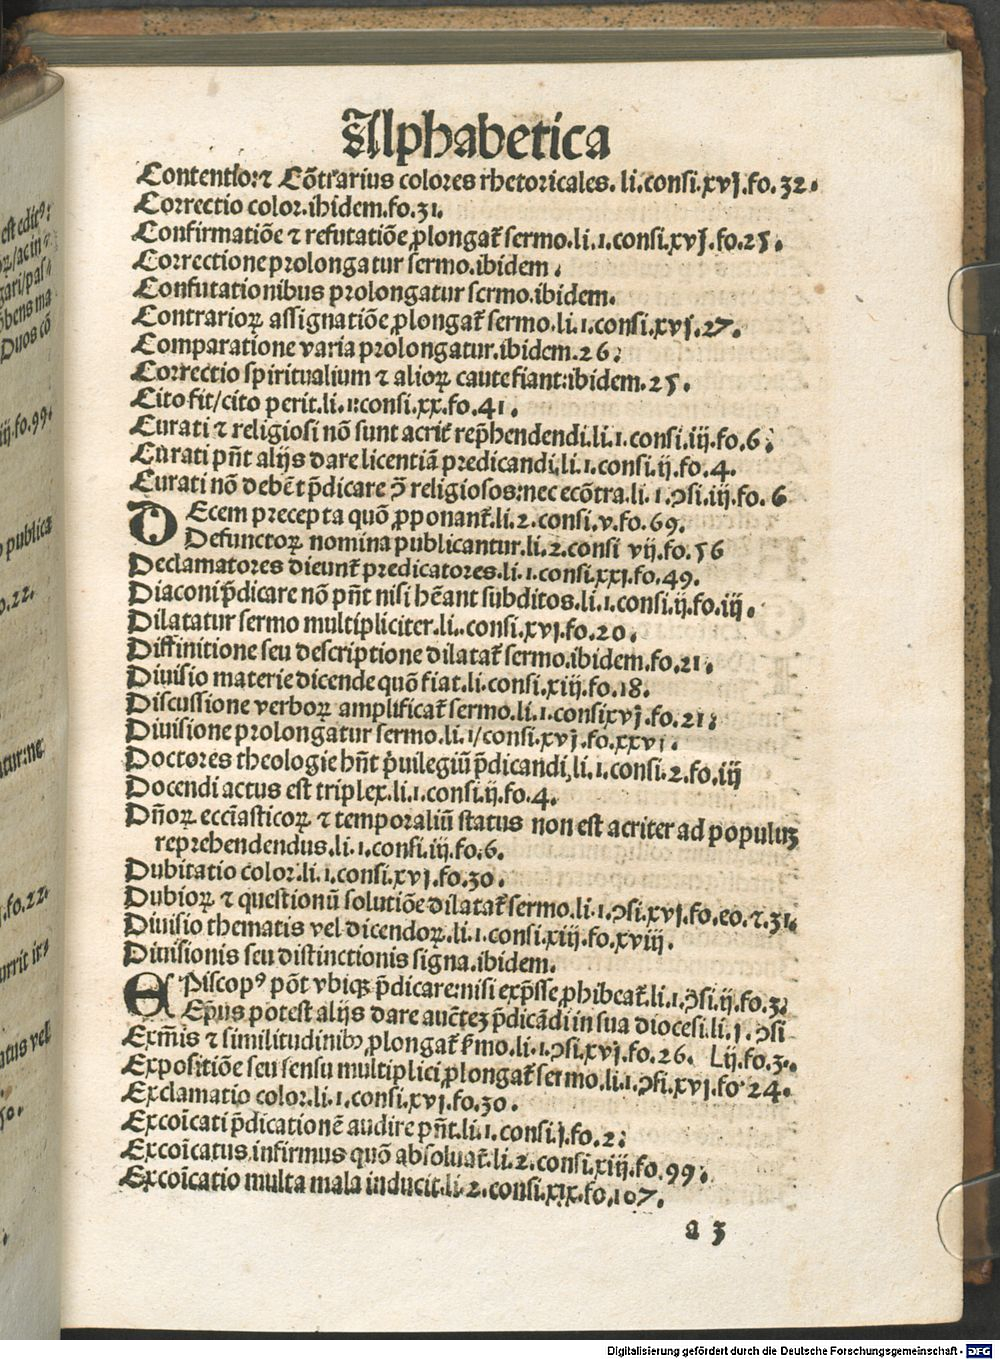 Alphabetica
Contentio:⁊ Cõtrarius colores rhetoricales. li.consi.xvj.fo.32.
Correctio color.ibidem.fo.31.
Confirmatiõe ⁊ refutatiõe ꝓlongat᷑ sermo.li.1.consi.xvj.fo.25.
Correctione prolongatur sermo.ibidem.
Confutationibus prolongatur sermo.ibidem.
Contrarioꝝ assignatiõe ꝓlongat᷑ sermo.li.1.consi.xvj.27.
Comparatione varia prolongatur.ibidem.26.
Correctio spiritualium ⁊ alioꝝ caute fiant:ibidem.25.
Cito fit/cito perit.li.1:consi.xx.fo.41.
Curati ⁊ religiosi nõ sunt acrit᷑ rep̃hendendi.li.1.consi.iij.fo.6.
Curati pñt alijs dare licentiã predicandi.li.1.consi.ij.fo.4.
Curati nõ debẽt p̃dicare ꝯ̃ religiosos:nec ecõtra.li.1.ꝯsi.iij.fo.6
DEcem precepta quõ ꝓponant᷑.li.2.consi.v.fo.69.
Defunctoꝝ nomina publicantur.li.2.consi vij.fo.56
Declamatores dicunt᷑ predicatores.li.1.consi.xxj.fo.49.
Diaconi p̃dicare nõ pñt nisi hẽant subditos.li.1.consi.ij.fo.iij.
Dilatatur sermo multipliciter.li..consi.xvj.fo.20.
Diffinitione seu descriptione dilatat᷑ sermo.ibidem.fo.21.
Diuisio materie dicende quõ fiat.li.consi.xiij.fo.18.
Discussione verboꝝ amplificat᷑ sermo.li.1.consixvj.fo.21.
Diuisione prolongatur sermo.li.1/consi.xvj.fo.xxvj.
Doctores theologie hñt p̃uilegiũ p̃dicandi,li.1.consi.2.fo.iij
Docendi actus est triplex.li.1.consi.ij.fo.4.
Dñoꝝ eccĩasticoꝝ ⁊ temporaliũ status non est acriter ad populuꝫ
reprehendendus.li.1.consi.iij.fo.6.
Dubitatio color.li.1.consi.xvj.fo.30.
Dubioꝝ ⁊ questionũ solutiõe dilatat᷑ sermo.li.1.ꝯsi.xvj.fo.eo.⁊.31.
Diuisio thematis vel dicendoꝝ.li.1.consi.xiij.fo.xviij.
Diuisionis seu distinctionis signa.ibidem.
EPiscopꝰ põt vbiqꝫ p̃dicare:nisi exp̃sse ꝓhibeat᷑.li.1.ꝯsi.ij.fo.3.
Ep̃us potest alijs dare auc̃teꝫ p̃dicãdi in sua diocesi.li.j.ꝯsi
Exm̃is ⁊ similitudinibꝰ ꝓlongat᷑ s̃mo.li.1.ꝯsi.xvj.fo.26. Lij.fo.3.
Expositiõe seu sensu multiplici ꝓlongat᷑ sermo.li.1.ꝯsi.xvj.fo.24.
Exclamatio color.li.1.consi.xvj.fo.30.
Excoĩcati p̃dicationẽ audire pñt.li.1.consi.j.fo.2.
Excoĩcatus infirmus quõ absoluat᷑.li.2.consi.xiij.fo.99.
Excoĩcatio multa mala inducit.li.2.consi.xix.fo.107.
a 3
est editꝰ:
Duos cõ
iij.fo.99.
publicã
o.22.
.fo.22.
Digitalisierung gefördert durch die Deutsche Forschungsgemeinschaft - DFG